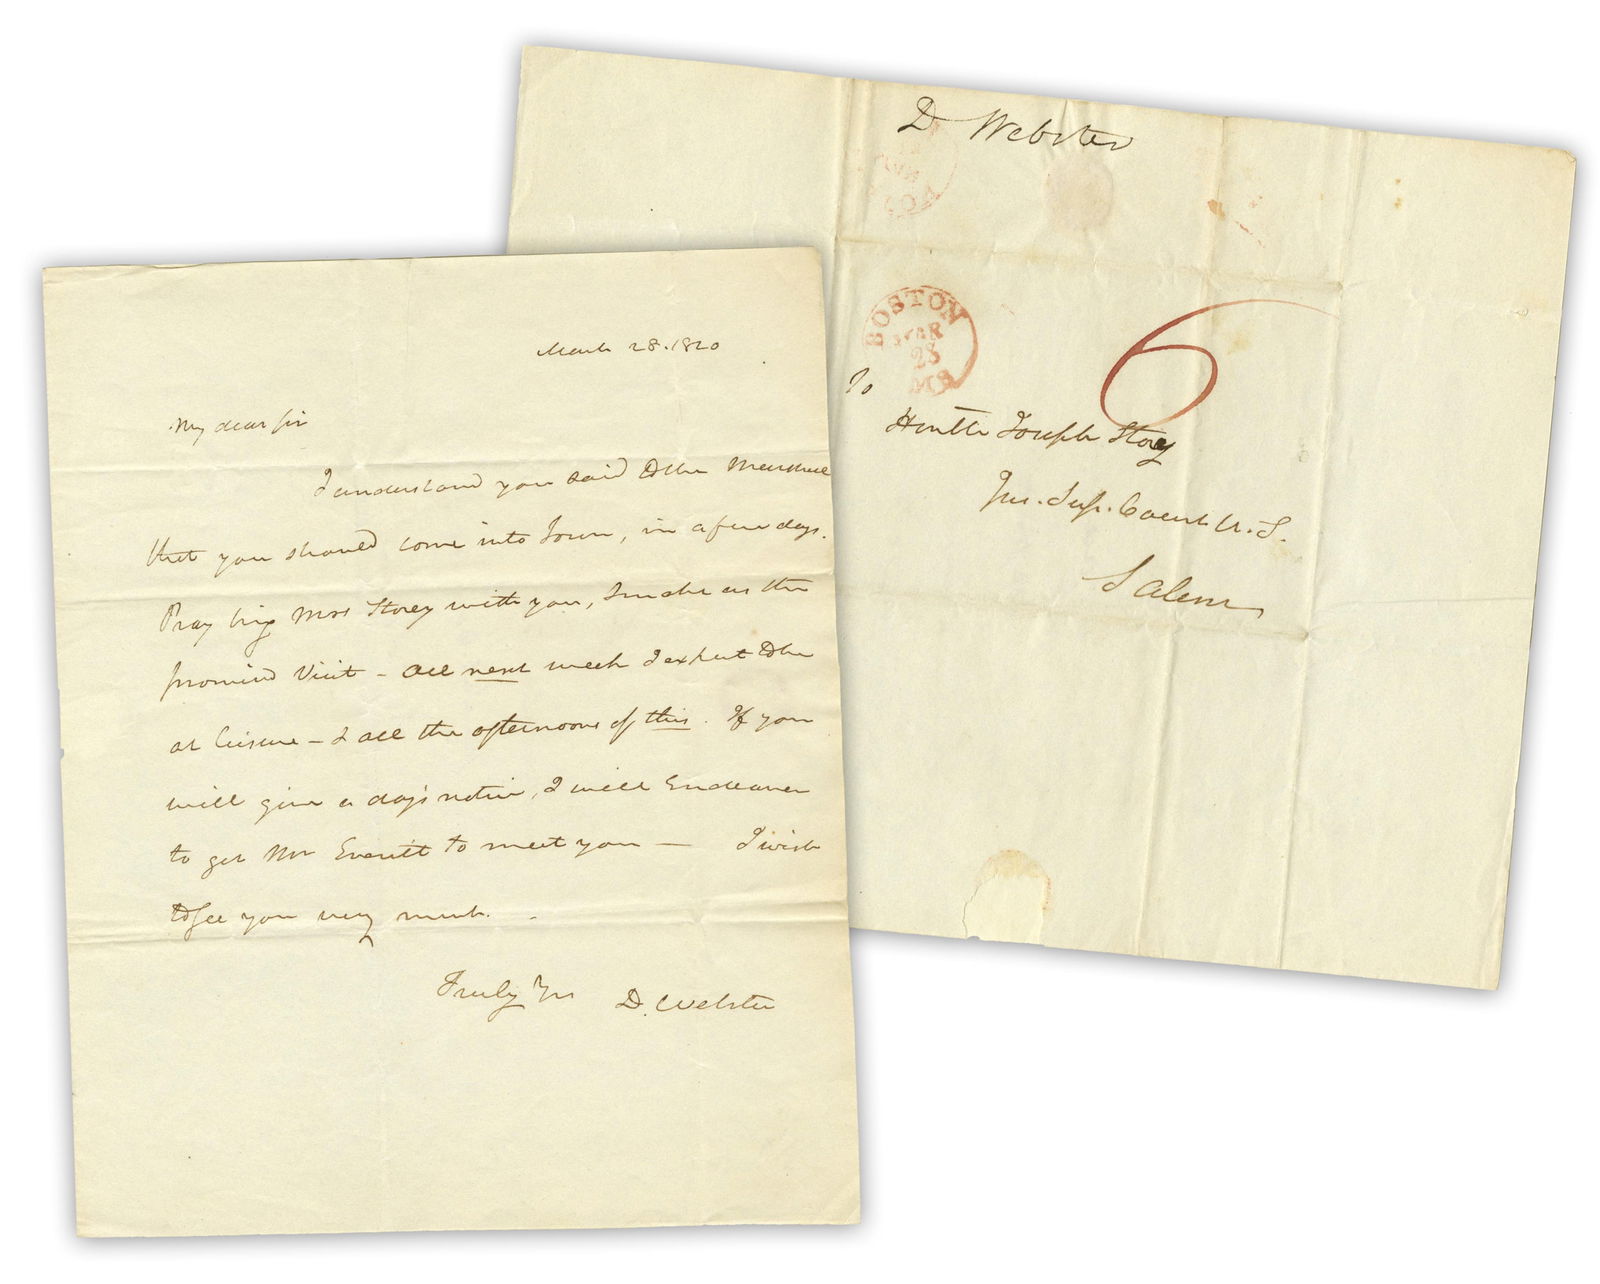 March 28. 1820
My dear Sir
I understand you said to the Marshall
that you should come into Town, in a few days.
Pray bring Mrs Story with you, & make us the
promised visit - all next week I expect to be
at leisure - & all the afternoons of this. If you
will give a day's notice, I will Endeavor
to get Mr Everett to meet you — I wish
to see you very much.
Truly Yrs D. Webster
D Webster
BOSTON
MAR
28
MS
6
To
Honble Joseph Story
Jus. Sup. Court U. S.
Salem